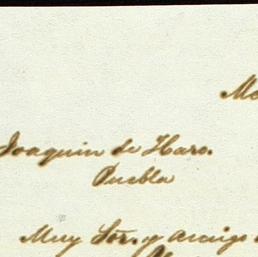 Joaquin de Haro.
Puebla
Muy Sor. y amigo